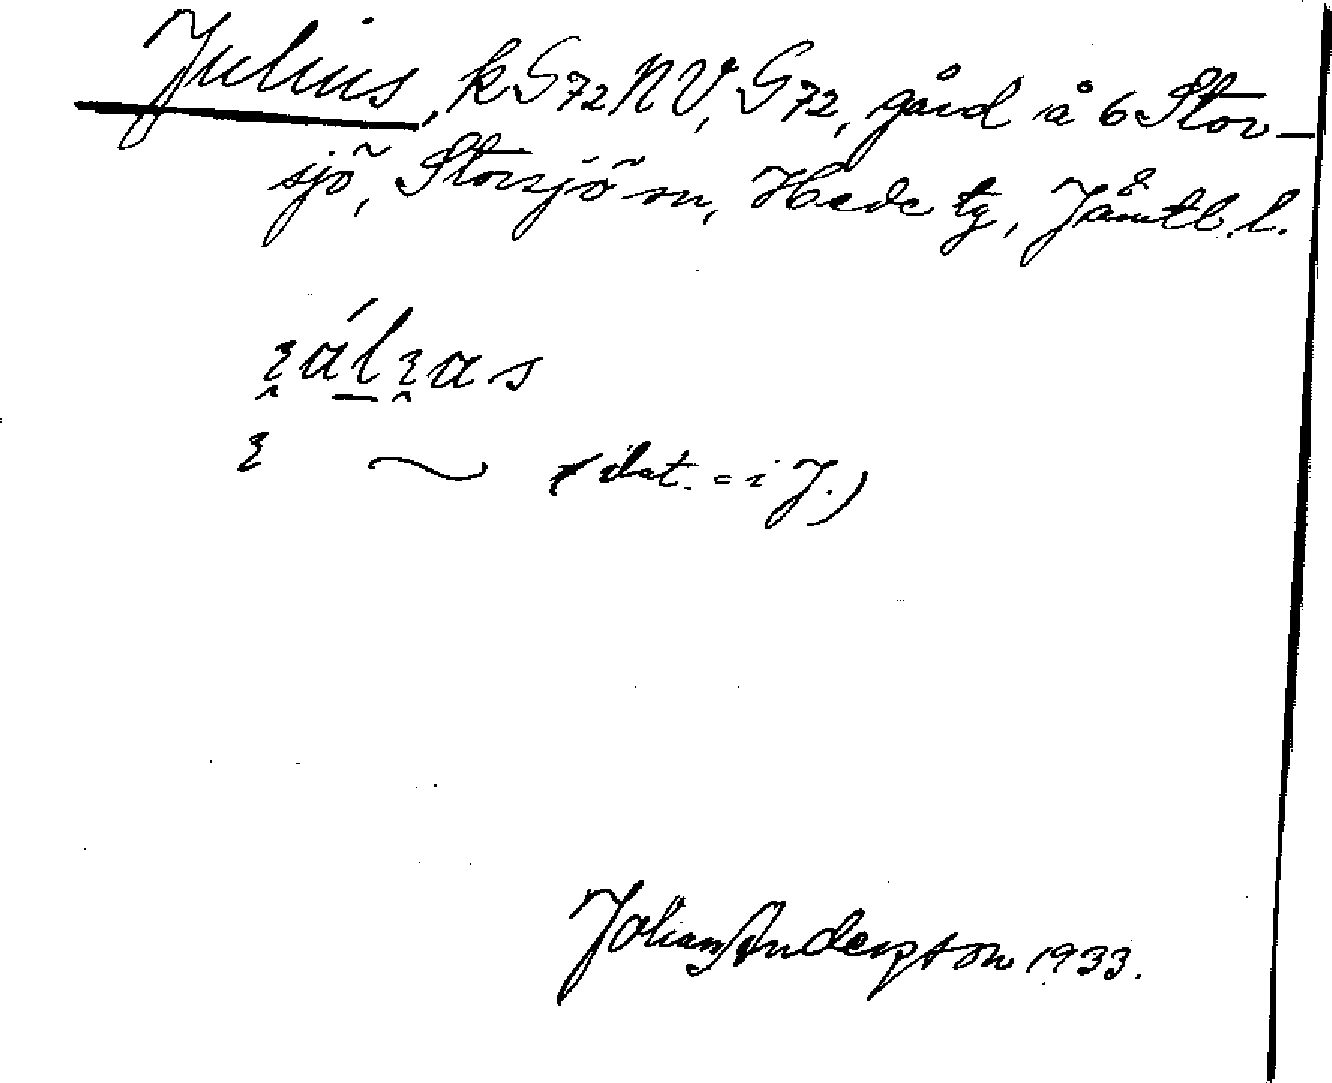 Julius, k G72 NV, G72, gård å 6 Stor-
sjö, Storsjö sn, Hede tg, Jämtl. l.
(dat. = i J.)
Johan Anderson 1933.